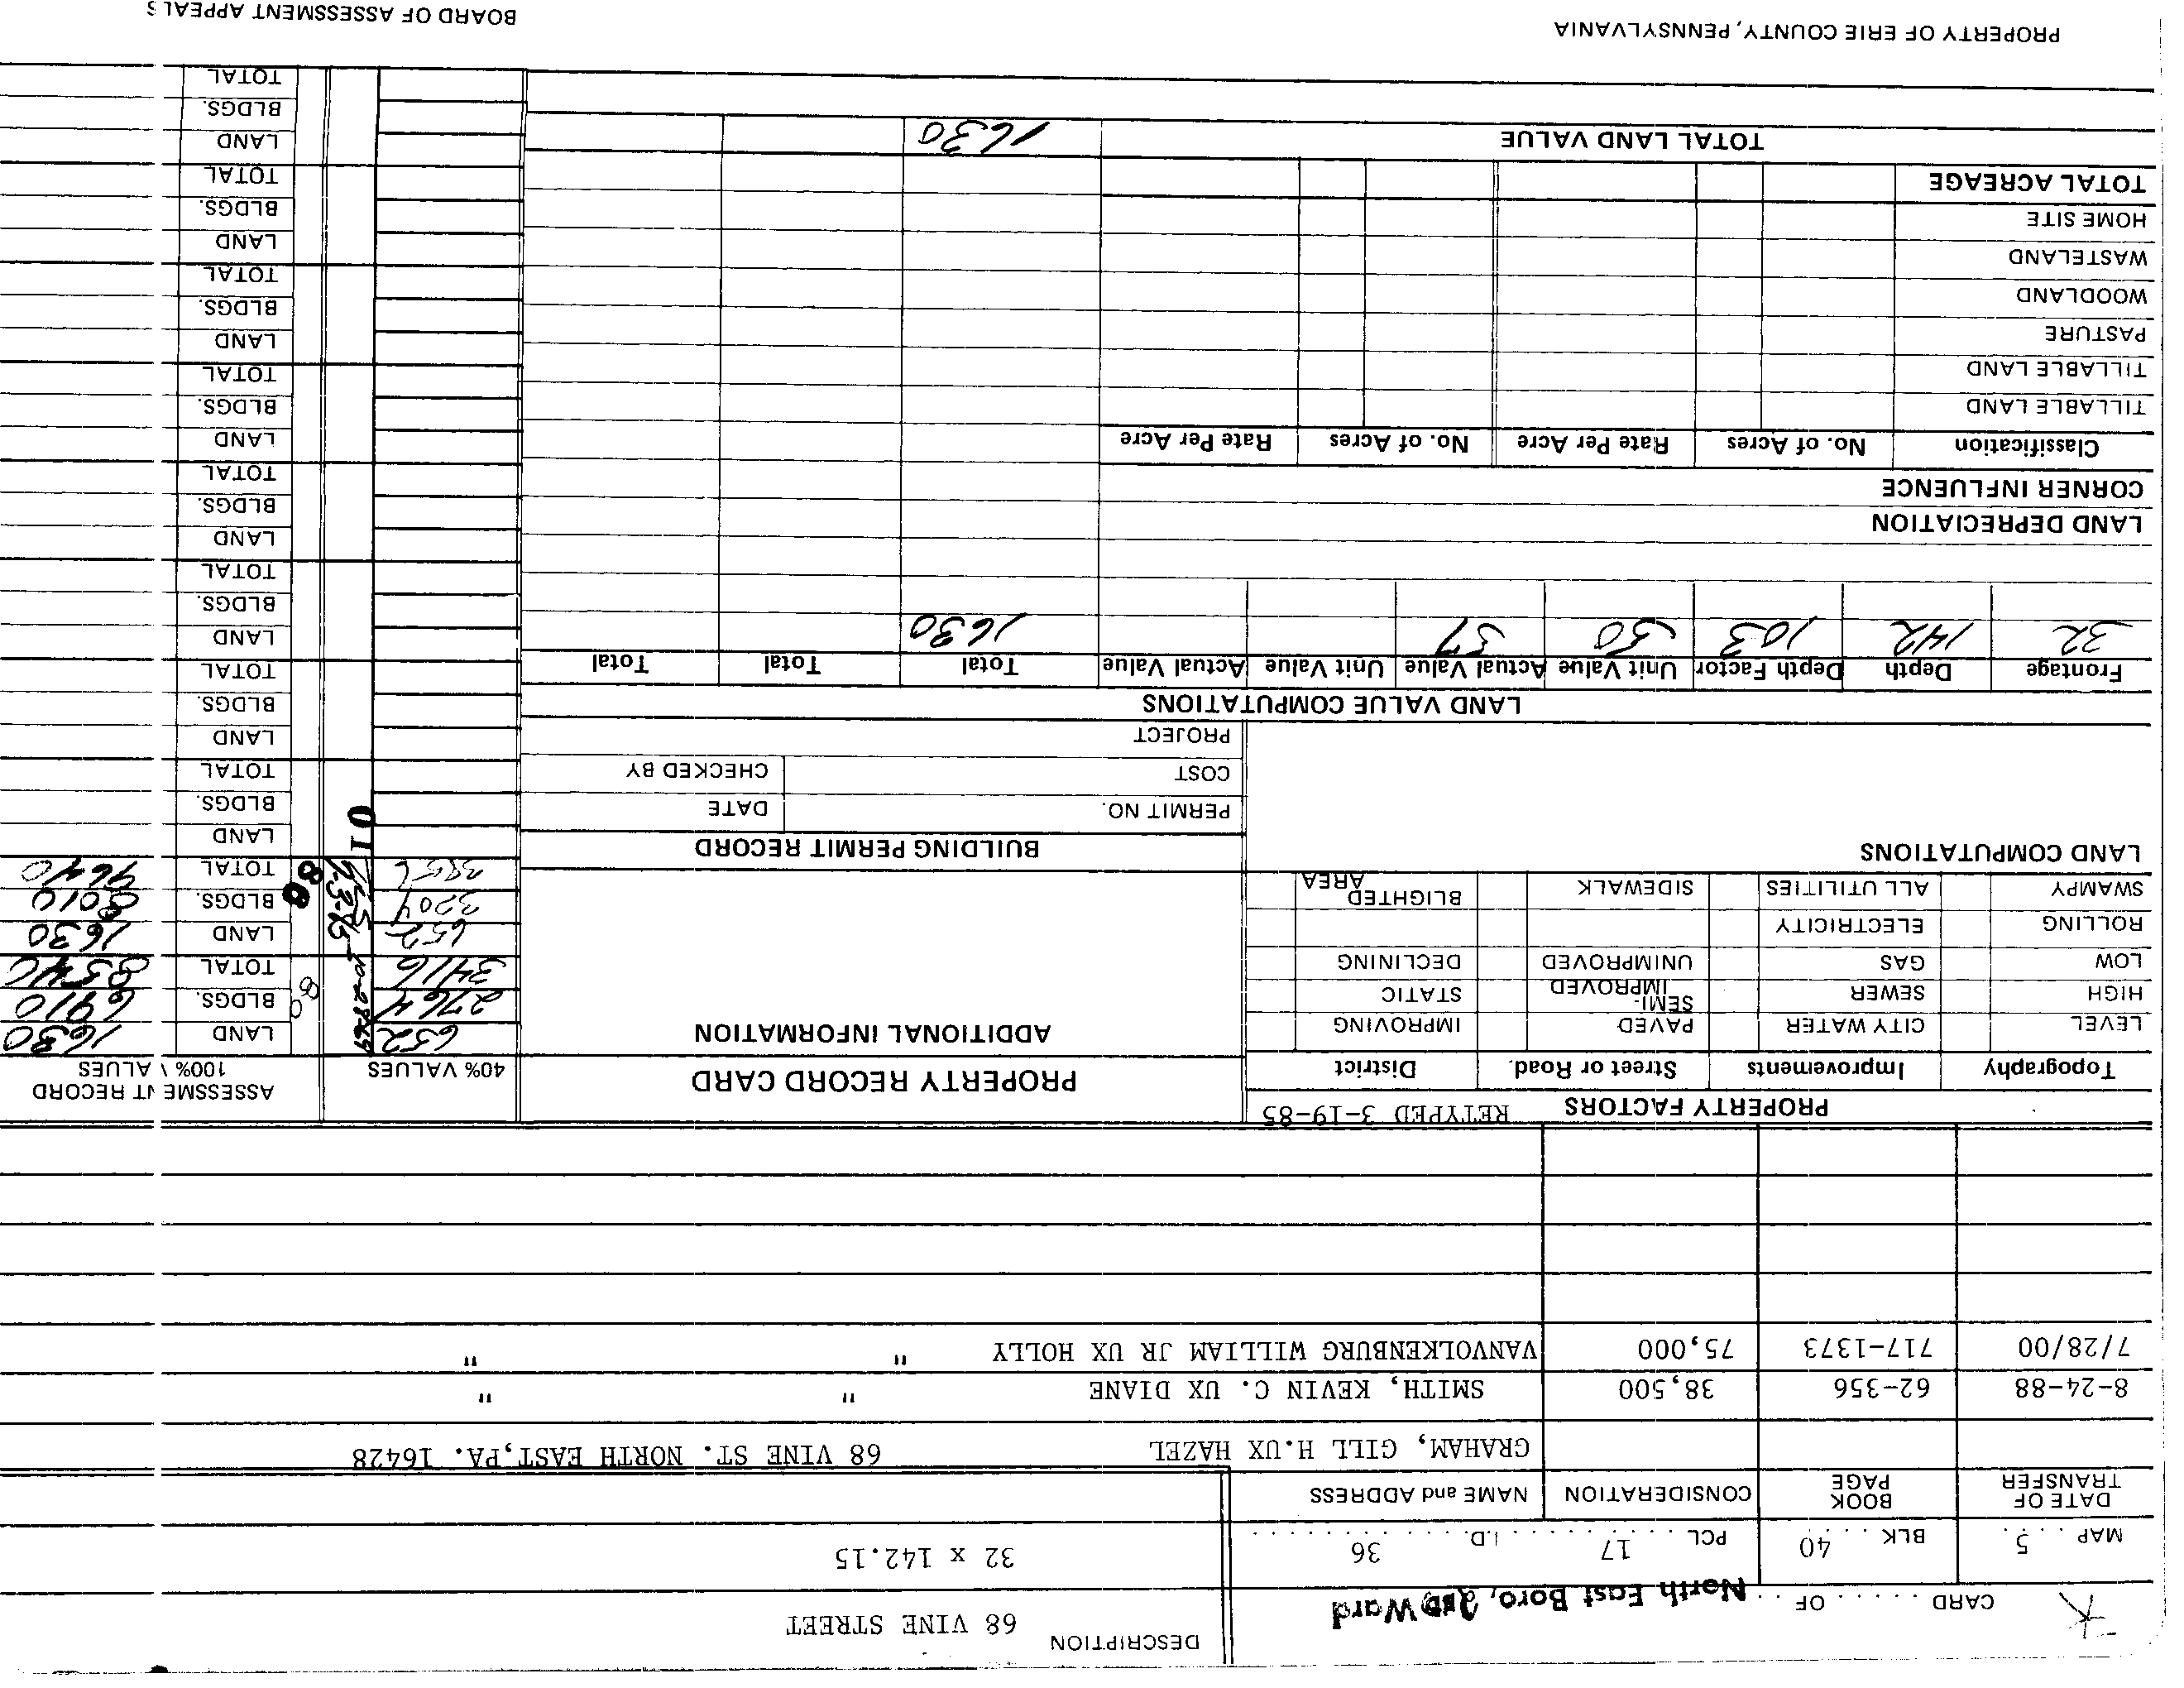 CARD . . . . . OF . . North East Boro, 2nd Ward
DESCRIPTION 68 VINE STREET
MAP . . 5 . BLK . . 40 . PCL . . 17 . . I.D. . . 36 . .
32 x 142.15
DATE OF TRANSFER BOOK PAGE CONSIDERATION NAME and ADDRESS
GRAHAM, GILL H.UX HAZEL 68 VINE ST. NORTH EAST,PA. 16428
8-24-88 62-356 38,500 SMITH, KEVIN C. UX DIANE " "
7/28/00 717-1373 75,000 VANVOLKENBURG WILLIAM JR UX HOLLY " "
PROPERTY FACTORS RETYPED 3-19-85
Topography Improvements Street or Road. District
LEVEL CITY WATER PAVED IMPROVING
HIGH SEWER SEMI-IMPROVED STATIC
LOW GAS UNIMPROVED DECLINING
ROLLING ELECTRICITY
SWAMPY ALL UTILITIES SIDEWALK BLIGHTED AREA
LAND COMPUTATIONS
PROPERTY RECORD CARD
ADDITIONAL INFORMATION
BUILDING PERMIT RECORD
PERMIT NO. DATE
COST CHECKED BY
PROJECT
40% VALUES ASSESSMENT RECORD 100% VALUES
652 LAND 1630
2764 BLDGS. 6910
3416 TOTAL 8540
10-28-69
80
652 LAND 1630
3204 BLDGS. 8010
3856 TOTAL 9640
88
01
LAND
BLDGS.
TOTAL
LAND
BLDGS.
TOTAL
LAND
BLDGS.
TOTAL
LAND
BLDGS.
TOTAL
LAND
BLDGS.
TOTAL
LAND
BLDGS.
TOTAL
LAND
BLDGS.
TOTAL
LAND
BLDGS.
TOTAL
LAND VALUE COMPUTATIONS
Frontage Depth Depth Factor Unit Value Actual Value Unit Value Actual Value Total Total Total
32 142 103 50 51 1630
LAND DEPRECIATION
CORNER INFLUENCE
Classification No. of Acres Rate Per Acre No. of Acres Rate Per Acre
TILLABLE LAND
TILLABLE LAND
PASTURE
WOODLAND
WASTELAND
HOME SITE
TOTAL ACREAGE
TOTAL LAND VALUE 1630
PROPERTY OF ERIE COUNTY, PENNSYLVANIA BOARD OF ASSESSMENT APPEALS